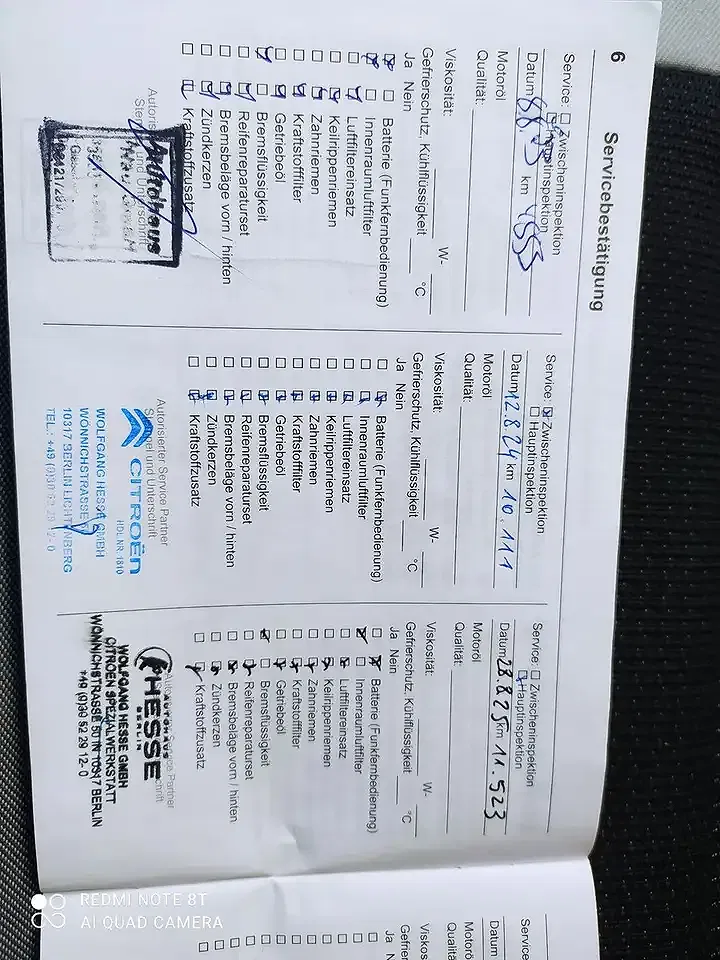 6
Servicebestätigung
Service: Zwischeninspektion
Hauptinspektion
Datum km
Motoröl
Qualität:
Viskosität: W-
Gefrierschutz, Kühlflüssigkeit °C
Ja Nein
Batterie (Funkfernbedienung)
Innenraumluftfilter
Luftfiltereinsatz
Keilrippenriemen
Zahnriemen
Kraftstofffilter
Getriebeöl
Bremsflüssigkeit
Reifenreparaturset
Bremsbeläge vorn / hinten
Zündkerzen
Kraftstoffzusatz
Autohaus
Service: Zwischeninspektion
Hauptinspektion
Datum 12.8.24 km 10.111
Motoröl
Qualität:
Viskosität: W-
Gefrierschutz, Kühlflüssigkeit °C
Ja Nein
Batterie (Funkfernbedienung)
Innenraumluftfilter
Luftfiltereinsatz
Keilrippenriemen
Zahnriemen
Kraftstofffilter
Getriebeöl
Bremsflüssigkeit
Reifenreparaturset
Bremsbeläge vorn / hinten
Zündkerzen
Kraftstoffzusatz
Autorisierter Service Partner
Siegel und Unterschrift
CITROËN
HDL.NR. 1810
WOLFGANG HESSE GMBH
WÖNNICHSTRASSE
10317 BERLIN LICHTENBERG
Service: Zwischeninspektion
Hauptinspektion
Datum 28.8.25 km 11.523
Motoröl
Qualität:
Viskosität: W-
Gefrierschutz, Kühlflüssigkeit °C
Ja Nein
Batterie (Funkfernbedienung)
Innenraumluftfilter
Luftfiltereinsatz
Keilrippenriemen
Zahnriemen
Kraftstofffilter
Getriebeöl
Bremsflüssigkeit
Reifenreparaturset
Bremsbeläge vorn / hinten
Zündkerzen
Kraftstoffzusatz
AUTOHAUS
HESSE
BERLIN
WOLFGANG HESSE GMBH
CITROËN SPEZIALWERKSTATT
10317 BERLIN
Service
Datum
Motoröl
Qualitä
Viskos
Gefrier
Ja N
REDMI NOTE 8T
AI QUAD CAMERA